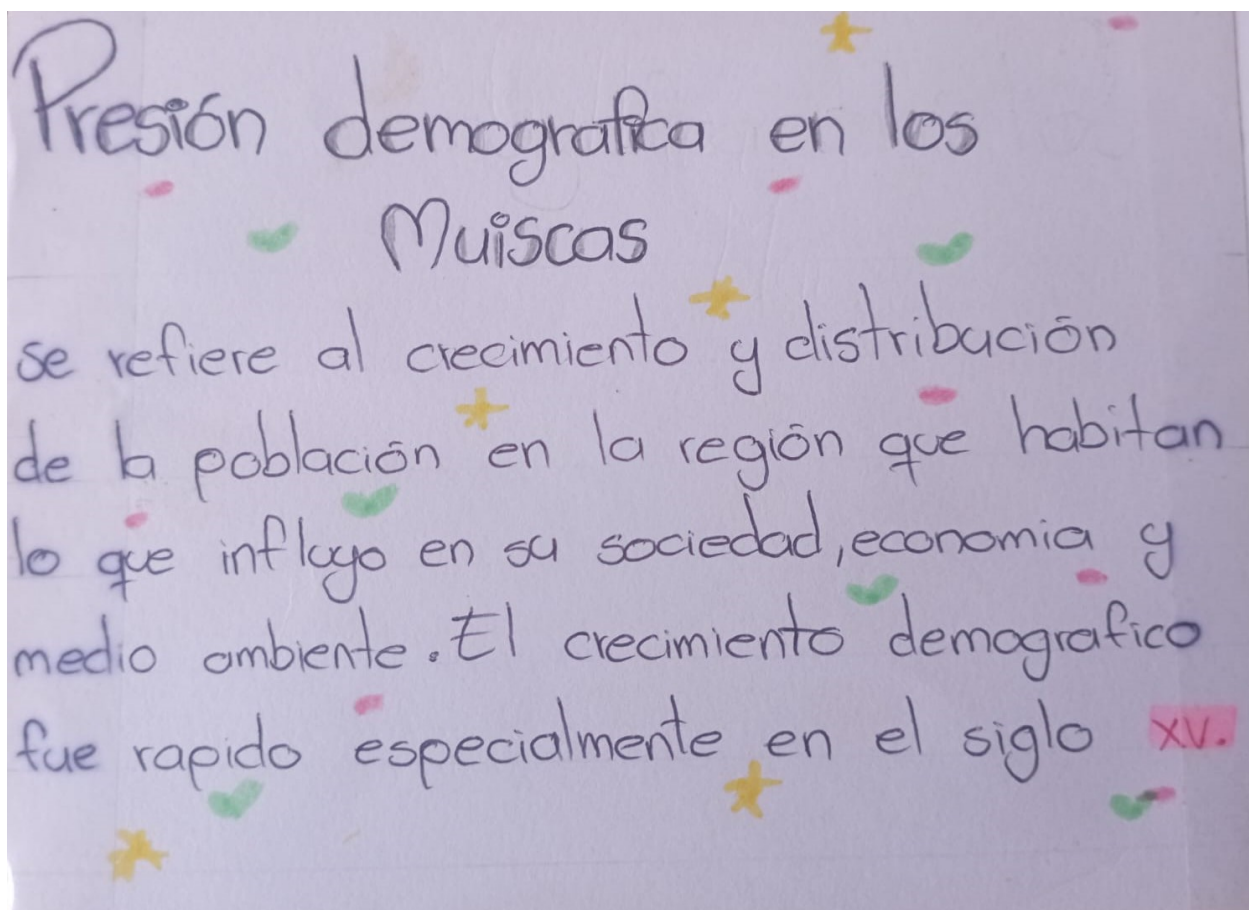 Presión demografica en los
Muiscas
se refiere al crecimiento y distribución
de la población en la región que habitan
lo que influyo en su sociedad, economia y
medio ambiente. El crecimiento demografico
fue rapido especialmente en el siglo XV.